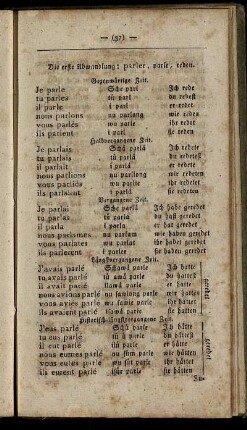 — (37) —
Die erste Abwandlung: parler, parle, reden.
Gegenwärtige Zeit.
Je parle Sche parl Ich rede
tu parles tü parl du redest
il parle i parl er redet
nous parlons nu parlong wir reden
vous parlés wu parle ihr redet
ils parlent i parl sie reden
Halbvergangene Zeit.
Je parlais Ich redete
tu parlais tü parlä du redetest
il parlait i parlä er redete
nous parlions nu parliong wir redeten
vous parliés wu parlie ihr redetet
ils parlaient i parlä sie redeten
Vergangene Zeit.
Je parlai Sche parlä Ich habe geredet
tu parlas tü parla du hast geredet
il parla i parla er hat geredet
nous parlames nu parlam wir haben geredet
vous parlates wu parlat ihr habet geredet
ils parlerent i parlär sie haben geredet
Längstvergangene Zeit.
J'avais parlé Ich hatte
tu avais parlé du hattest
il avait parlé er hatte
nous avions parlé wir hatten
vous aviés parlé ihr hattet
ils avaient parlé sie hatten
geredet
J'eus parlé Ich hätte
tu eus parlé du hättest
il eut parlé er hätte
nous eumes parlé wir hätten
vous eutes parlé ihr hättet
ils eurent parlé sie hätten
geredet